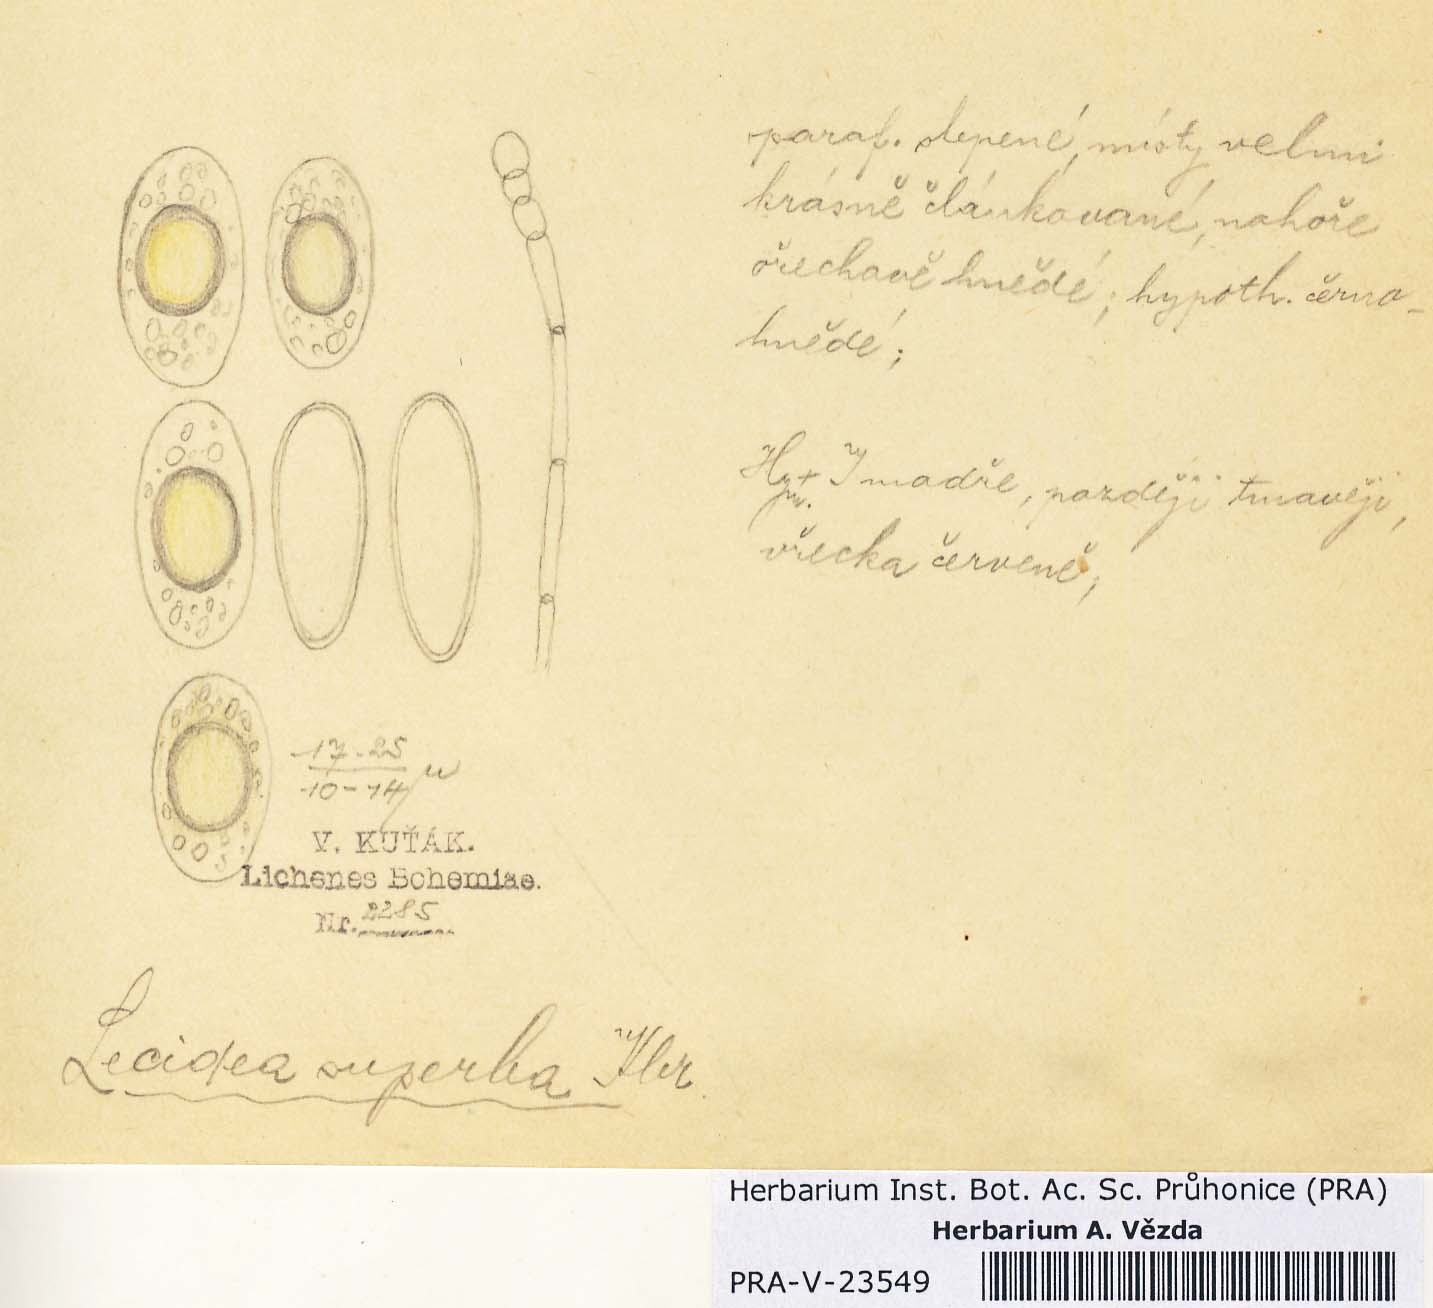 paraf. slepené, místy velmi
krásně článkované, nahoře
ořechavě hnědé; hypoth. černo-
hnědé;
J modře, později tmavěji,
vřecka červeně;
17-25
10-14 μ
V. KUŤÁK.
Lichenes Bohemiae.
Nr. 2285
Lecidea superba Kbr.
Herbarium Inst. Bot. Ac. Sc. Průhonice (PRA)
Herbarium A. Vězda
PRA-V-23549